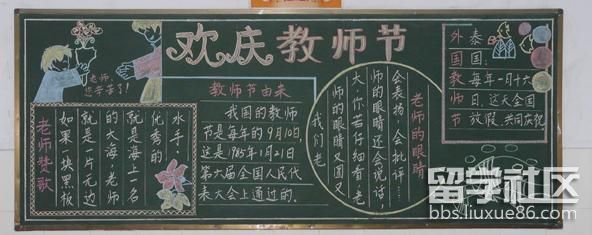 欢庆教师节
老师,
您辛苦了!
老师赞歌
如果一块黑板
就是一片无边
的大海,老师
就是海上一名
优秀的
水手。
教师节由来
我国的教师
节是每年的9月10日,
这是1985年1月21日
第六届全国人民代
表大会上通过的。
老师的眼睛
我们老
师的眼睛又圆又
大,你若仔细看,老
师的眼睛还会说话,
会表扬,会批评……
外国教师节
泰国:
每年一月十六
日,这天全国
放假,共同庆祝
留学社区
bbs.liuxue86.com